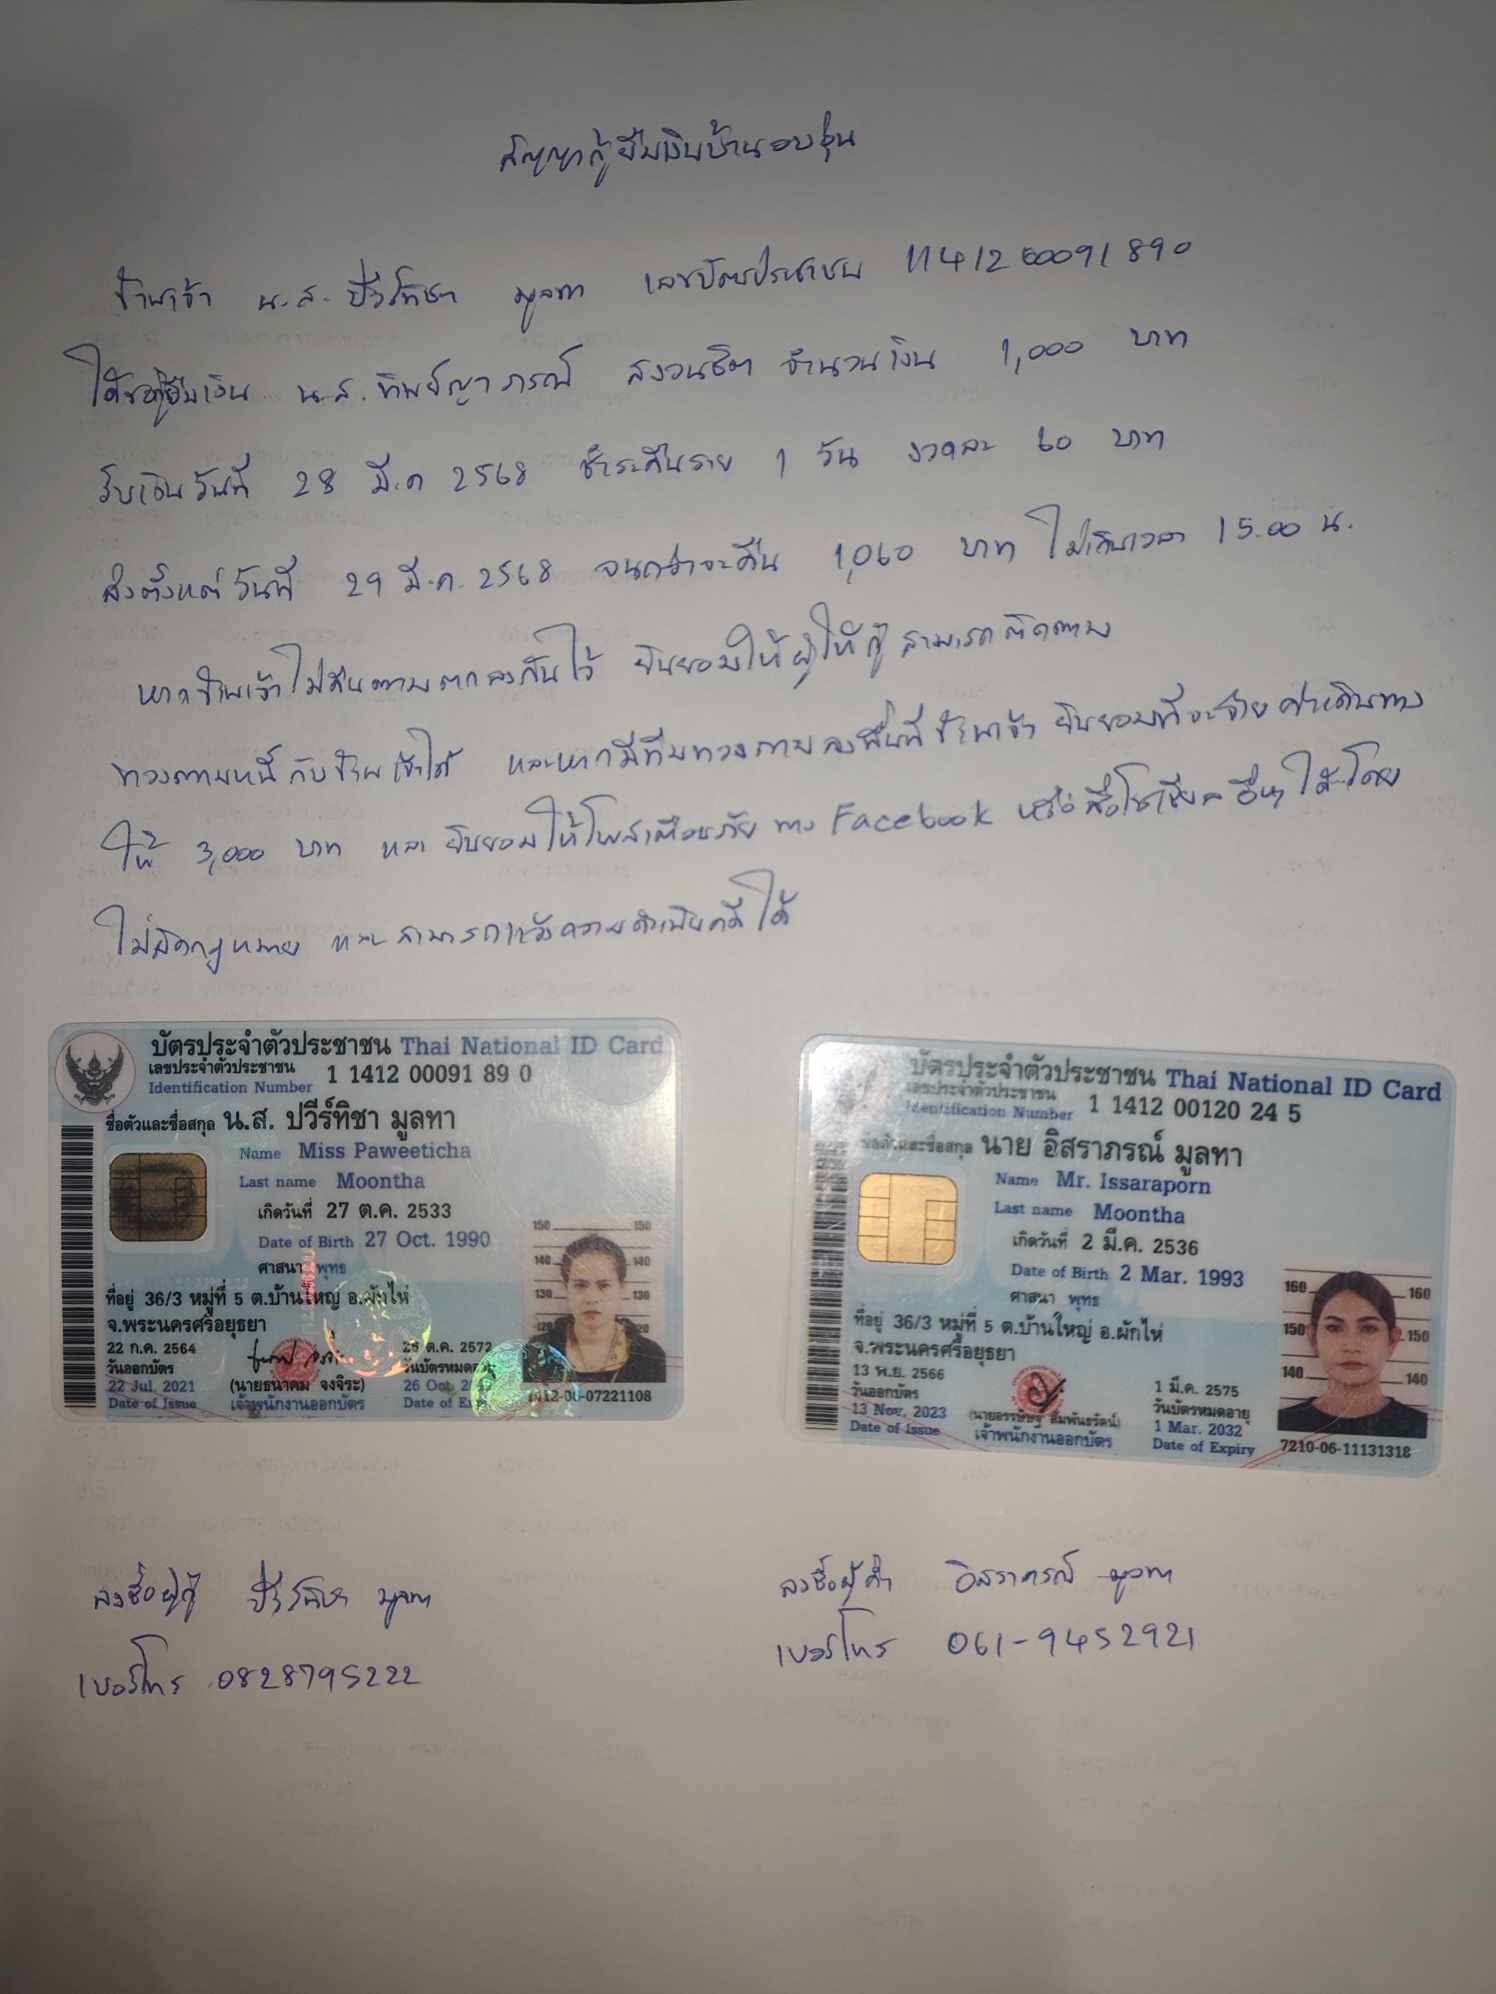 สัญญากู้ยืมเงินบ้านอบอุ่น
ข้าพเจ้า น.ส. ปวีร์ทิชา มูลทา เลขบัตรประชาชน 1141200091890
ได้ขอกู้ยืมเงิน น.ส. ทิพย์ญาภรณ์ สงวนชิต จำนวนเงิน 1,000 บาท
รับเงินวันที่ 28 มี.ค 2568 ชำระคืนราย 1 วัน งวดละ 60 บาท
ส่งตั้งแต่วันที่ 29 มี.ค. 2568 จนกว่าจะคืน 1,060 บาท ไม่เกินเวลา 15.00 น.
หากข้าพเจ้าไม่คืนตามตกลงกันไว้ ยินยอมให้ผู้ให้กู้สามารถติดตาม
ทวงถามหนี้กับข้าพเจ้าได้ และหากมีทีมทวงถามลงพื้นที่ข้าพเจ้า ยินยอมที่จะจ่ายค่าเดินทาง
ให้ 3,000 บาท และยินยอมให้โพสเตือนภัยทาง Facebook หรือสื่อโซเชียลอื่นๆ ได้โดย
ไม่ผิดกฎหมาย และสามารถแจ้งความดำเนินคดีได้
บัตรประจำตัวประชาชน Thai National ID Card
เลขประจำตัวประชาชน
Identification Number 1 1412 00091 89 0
ชื่อตัวและชื่อสกุล น.ส. ปวีร์ทิชา มูลทา
Name Miss Paweeticha
Last name Moontha
เกิดวันที่ 27 ต.ค. 2533
Date of Birth 27 Oct. 1990
ศาสนา พุทธ
ที่อยู่ 36/3 หมู่ที่ 5 ต.บ้านใหญ่ อ.ผักไห่
จ.พระนครศรีอยุธยา
22 ก.ค. 2564
วันออกบัตร
22 Jul. 2021
Date of Issue
(นายธนาคม จงจิระ)
เจ้าพนักงานออกบัตร
26 ต.ค. 2572
วันบัตรหมดอายุ
26 Oct.
150 150
140 140
130 130
120 120
1412-06-07221108
บัตรประจำตัวประชาชน Thai National ID Card
เลขประจำตัวประชาชน
Identification Number 1 1412 00120 24 5
ชื่อตัวและชื่อสกุล นาย อิสราภรณ์ มูลทา
Name Mr. Issaraporn
Last name Moontha
เกิดวันที่ 2 มี.ค. 2536
Date of Birth 2 Mar. 1993
ศาสนา พุทธ
ที่อยู่ 36/3 หมู่ที่ 5 ต.บ้านใหญ่ อ.ผักไห่
จ.พระนครศรีอยุธยา
13 พ.ย. 2566
วันออกบัตร
13 Nov. 2023
Date of Issue
(นายอรรษิษฐ์ สัมพันธรัตน์)
เจ้าพนักงานออกบัตร
1 มี.ค. 2575
วันบัตรหมดอายุ
1 Mar. 2032
Date of Expiry
160 160
150 150
140 140
7210-06-11131318
ลงชื่อผู้กู้ ปวีร์ทิชา มูลทา
เบอร์โทร 0828795222
ลงชื่อผู้ค้ำ อิสราภรณ์ มูลทา
เบอร์โทร 061-9452921